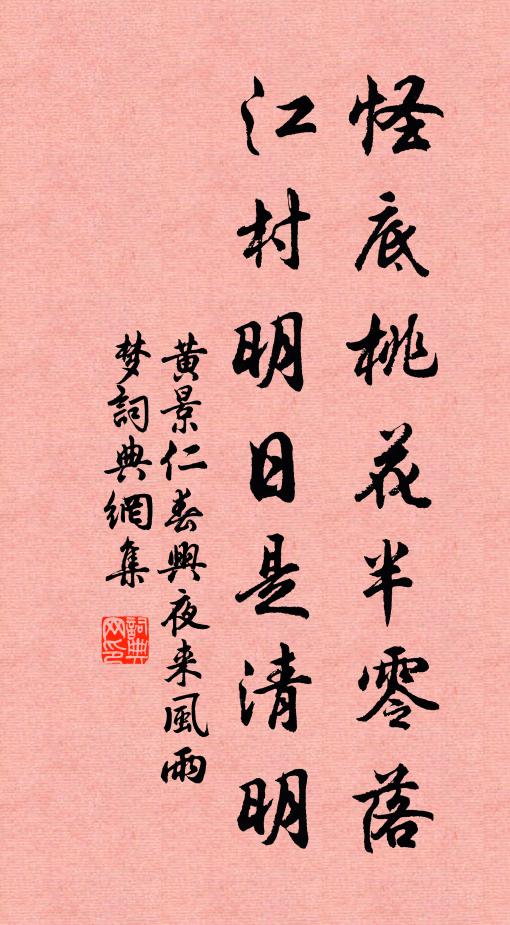 怪底桃花半零落
江村明日是清明
黄景仁春興夜来風雨
梦詞典網集
詞典网印